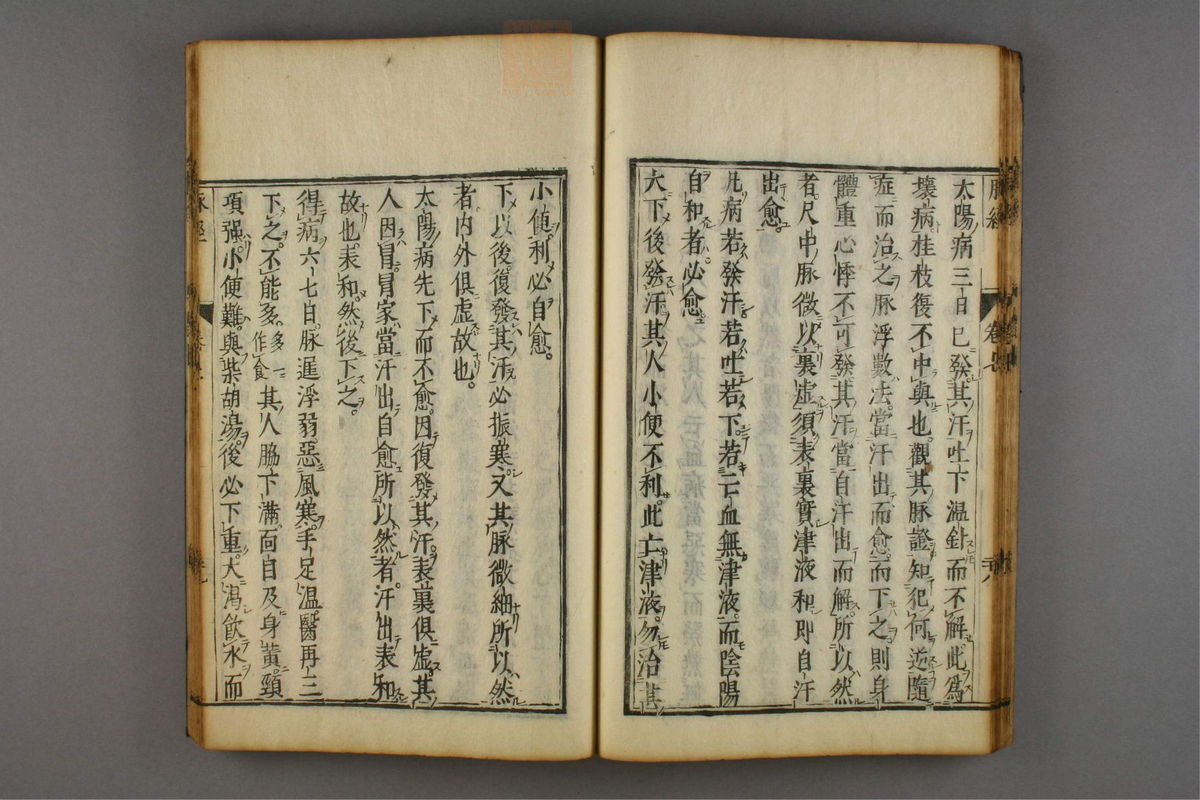 太陽病三日已發其汗吐下温針而不解此爲
壞病桂枝復不中與也觀其脉證知犯何逆隨
症而治之脉浮數法當汗出而愈而下之則身
體重心悸不可發其汗當自汗出而解所以然
者尺中脉微以裏虚須表裏實津液和即自汗
出愈
凡病若發汗若吐若下若亡血無津液而陰陽
自和者必愈
大下後發汗其人小便不利此亡津液勿治其
小便利必自愈
下以後復發其汗必振寒又其脉微細所以然
者内外俱虚故也
太陽病先下而不愈因復發其汗表裏俱虚其
人因冒冒家當汗出自愈所以然者汗出表和
故也表和然後下之
得病六七日脉遲浮弱惡風寒手足温醫再三
下之不能多多一作食其人脇下滿面目及身黄頸
項强小便難與柴胡湯後必下重大渴飲水而
脉經